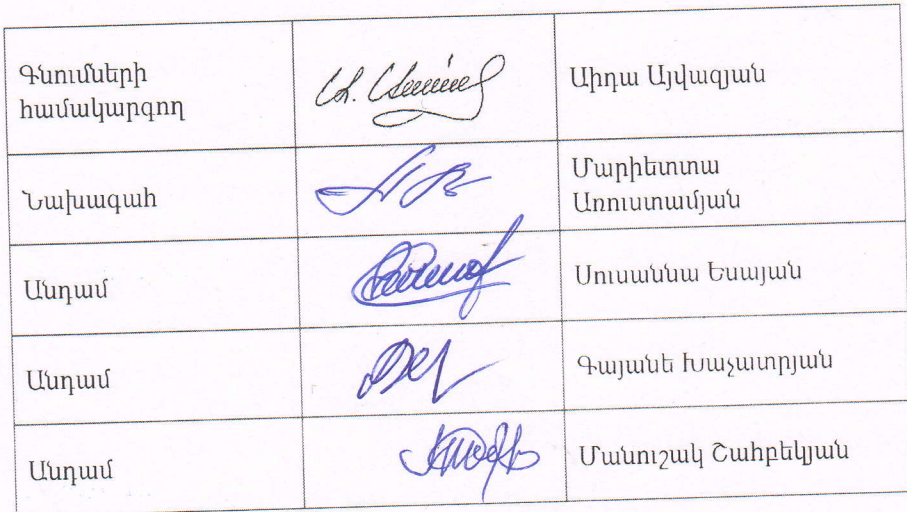 Գնումների
համակարգող
Աիդա Այվազյան
Նախագահ
Մարիետտա
Առուստամյան
Անդամ
Սուսաննա Եսայան
Անդամ
Գայանե Խաչատրյան
Անդամ
Մանուշակ Շահբեկյան